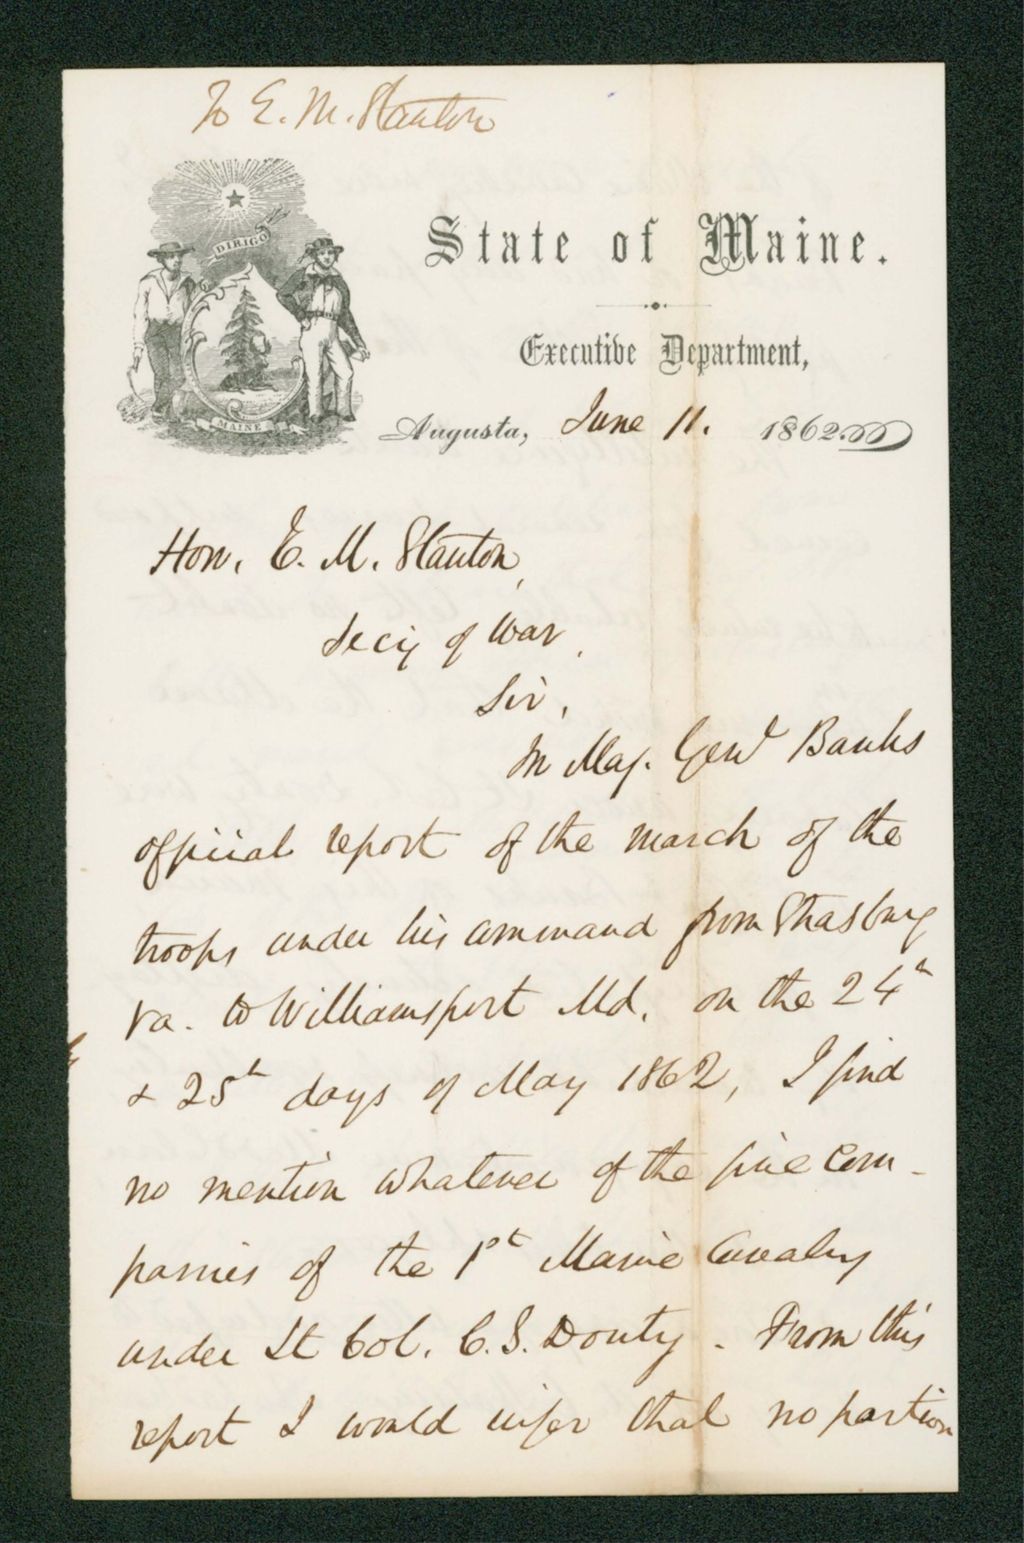 To E. M. Stanton
DIRIGO
MAINE
State of Maine.
Executive Department,
Augusta, June 11. 1862.
Hon. E. M. Stanton,
Secy of War,
Sir,
In Maj. Genl Banks
official report of the march of the
troops under his command from Strasburg
Va. to Williamsport Md. on the 24th
& 25th days of May 1862, I find
no mention whatever of the five com-
panies of the 1st Maine Cavalry
under Lt Col. C. S. Douty. From this
report I would infer that no portion